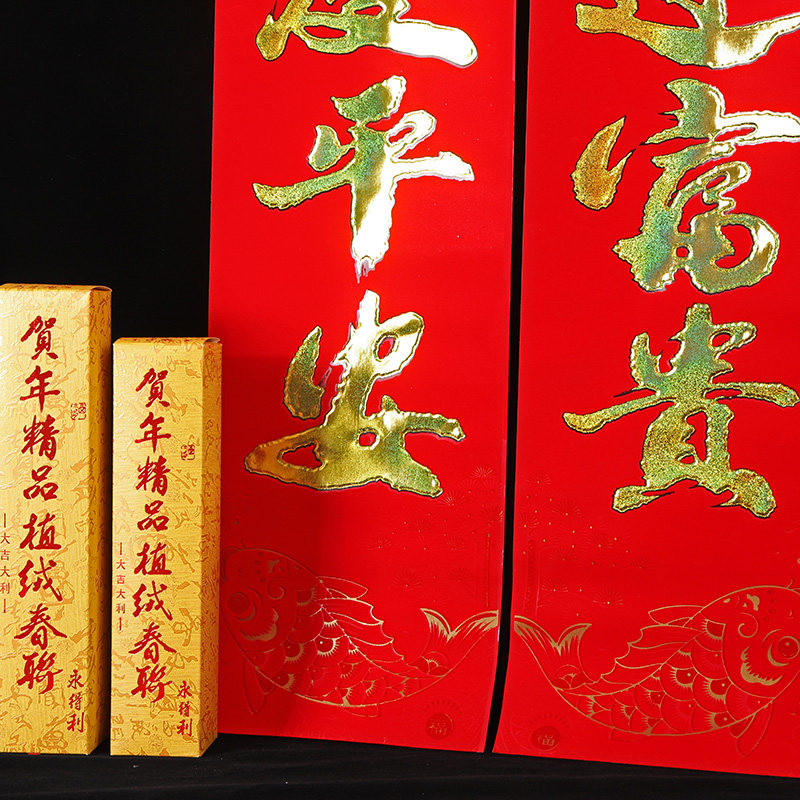 賀年精品植绒春聯
大吉大利
永得利
賀年精品植绒春聯
大吉大利
永得利
平安
富贵
福
福